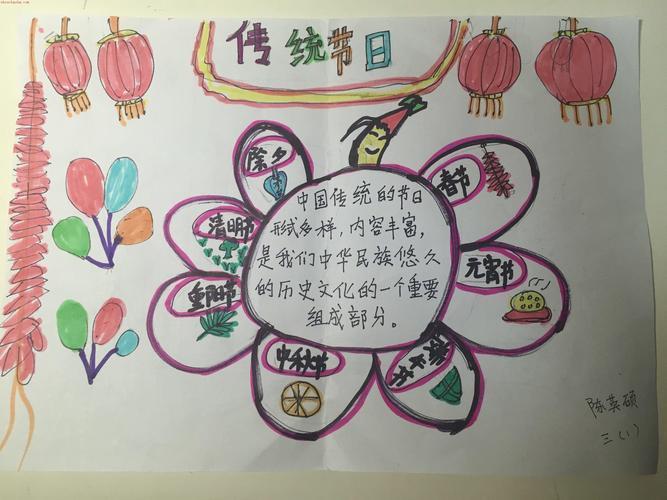 传统节日
除夕
春节
清明节
元宵节
重阳节
中秋节
中国传统的节日
形式多样，内容丰富，
是我们中华民族悠久
的历史文化的一个重要
组成部分。
陈英硕
三（1）